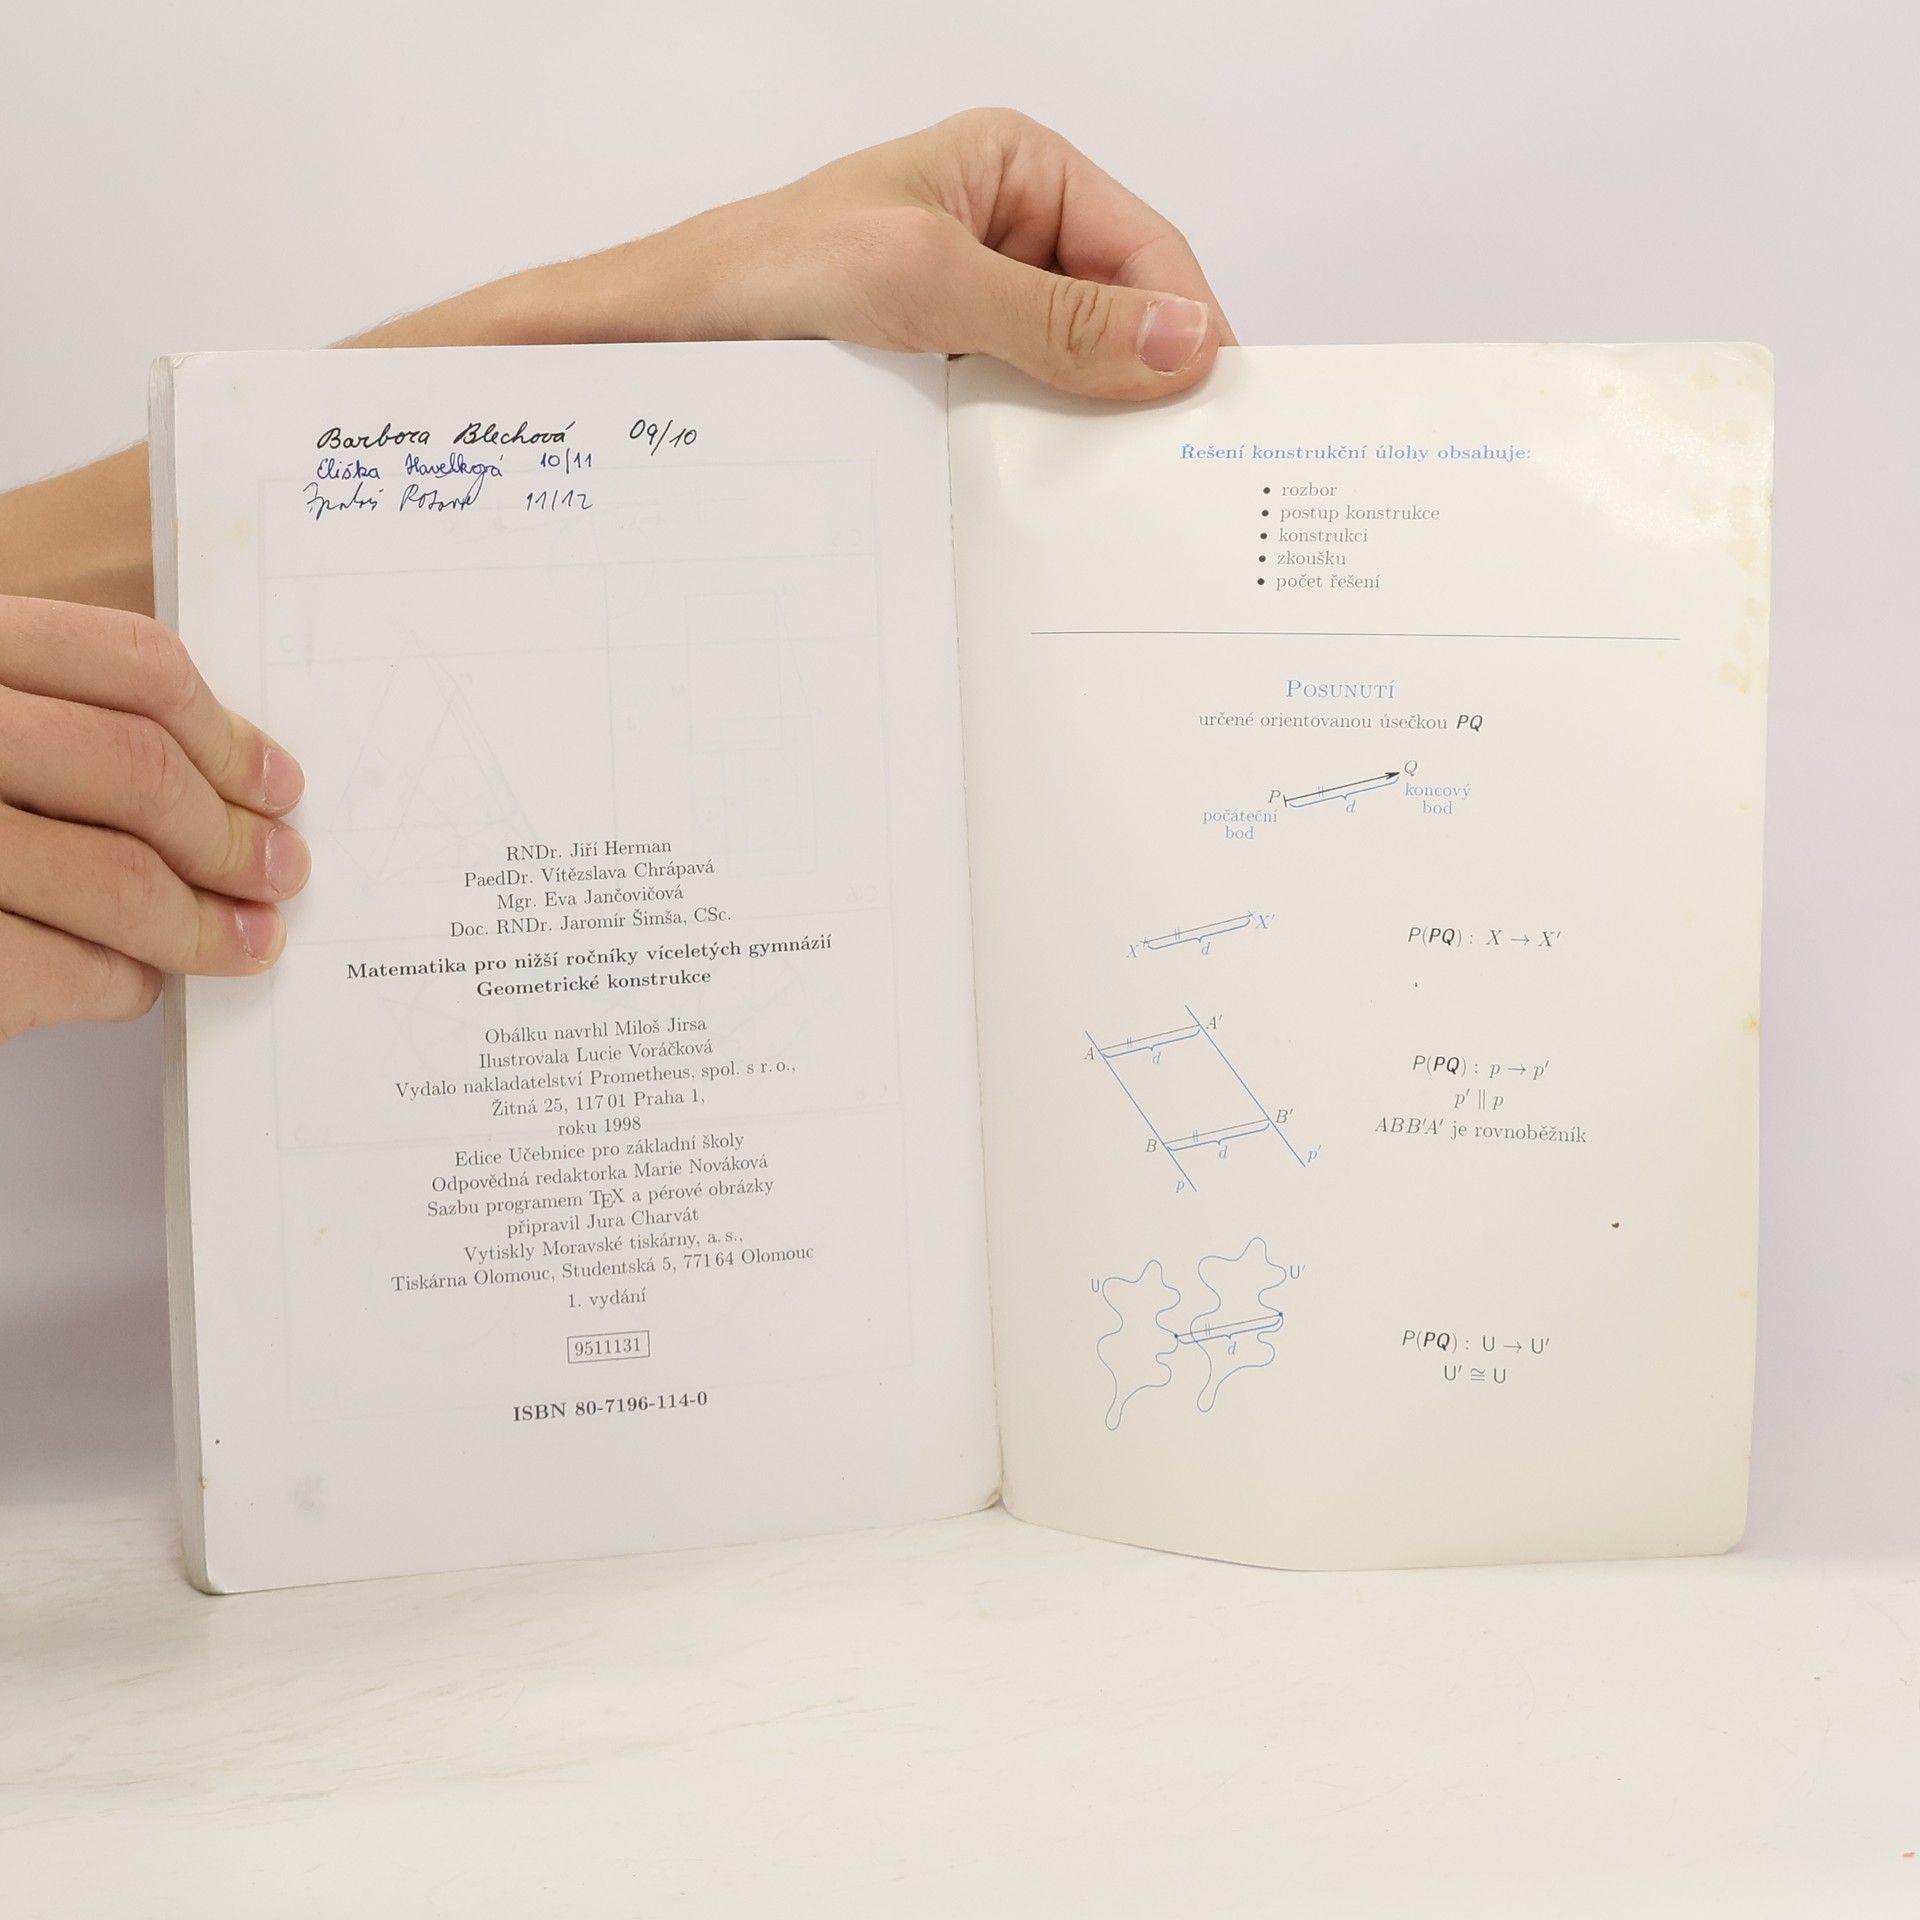 Barbora Blechová 09/10
Eliška Havelková 10/11
11/12
RNDr. Jiří Herman
PaedDr. Vítězslava Chrápavá
Mgr. Eva Jančovičová
Doc. RNDr. Jaromír Šimša, CSc.
Matematika pro nižší ročníky víceletých gymnázií
Geometrické konstrukce
Obálku navrhl Miloš Jirsa
Ilustrovala Lucie Voráčková
Vydalo nakladatelství Prometheus, spol. s r. o.,
Žitná 25, 117 01 Praha 1,
roku 1998
Edice Učebnice pro základní školy
Odpovědná redaktorka Marie Nováková
Sazbu programem TEX a pérové obrázky
připravil Jura Charvát
Vytiskly Moravské tiskárny, a. s.,
Tiskárna Olomouc, Studentská 5, 771 64 Olomouc
1. vydání
9511131
ISBN 80-7196-114-0
Řešení konstrukční úlohy obsahuje:
• rozbor
• postup konstrukce
• konstrukci
• zkoušku
• počet řešení
POSUNUTÍ
určené orientovanou úsečkou PQ
P Q
d
počáteční
bod
koncový
bod
X X′
d
P(PQ) : X → X′
A A′
d
B B′
d
p p′
P(PQ) : p → p′
p′ ∥ p
ABB′A′ je rovnoběžník
U U′
d
P(PQ) : U → U′
U′ ≅ U